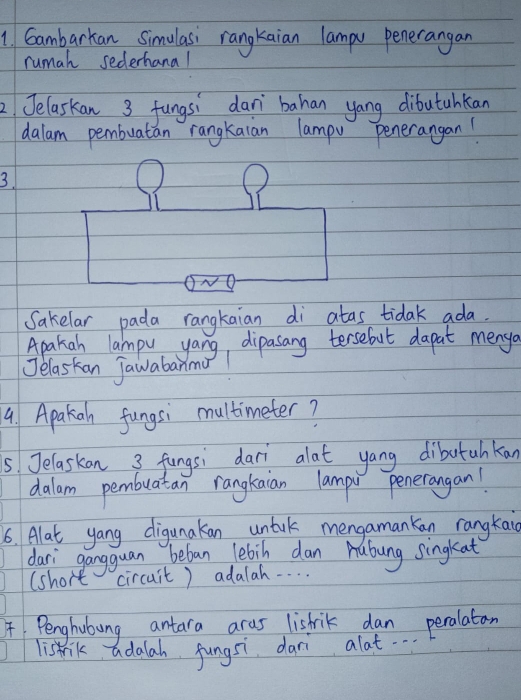 1. Gambarkan simulasi rangkaian lampu penerangan
rumah sederhana!
2. Jelaskan 3 fungsi dari bahan yang dibutuhkan
dalam pembuatan rangkaian lampu penerangan!
3.
Sakelar pada rangkaian di atas tidak ada.
Apakah lampu yang dipasang tersebut dapat menya
Jelaskan jawabanmu!
4. Apakah fungsi multimeter?
5. Jelaskan 3 fungsi dari alat yang dibutuhkan
dalam pembuatan rangkaian lampu penerangan!
6. Alat yang digunakan untuk mengamankan rangkaia
dari gangguan beban lebih dan hubung singkat
(short circuit) adalah ....
7. Penghubung antara arus listrik dan peralatan
listrik adalah fungsi dari alat ...